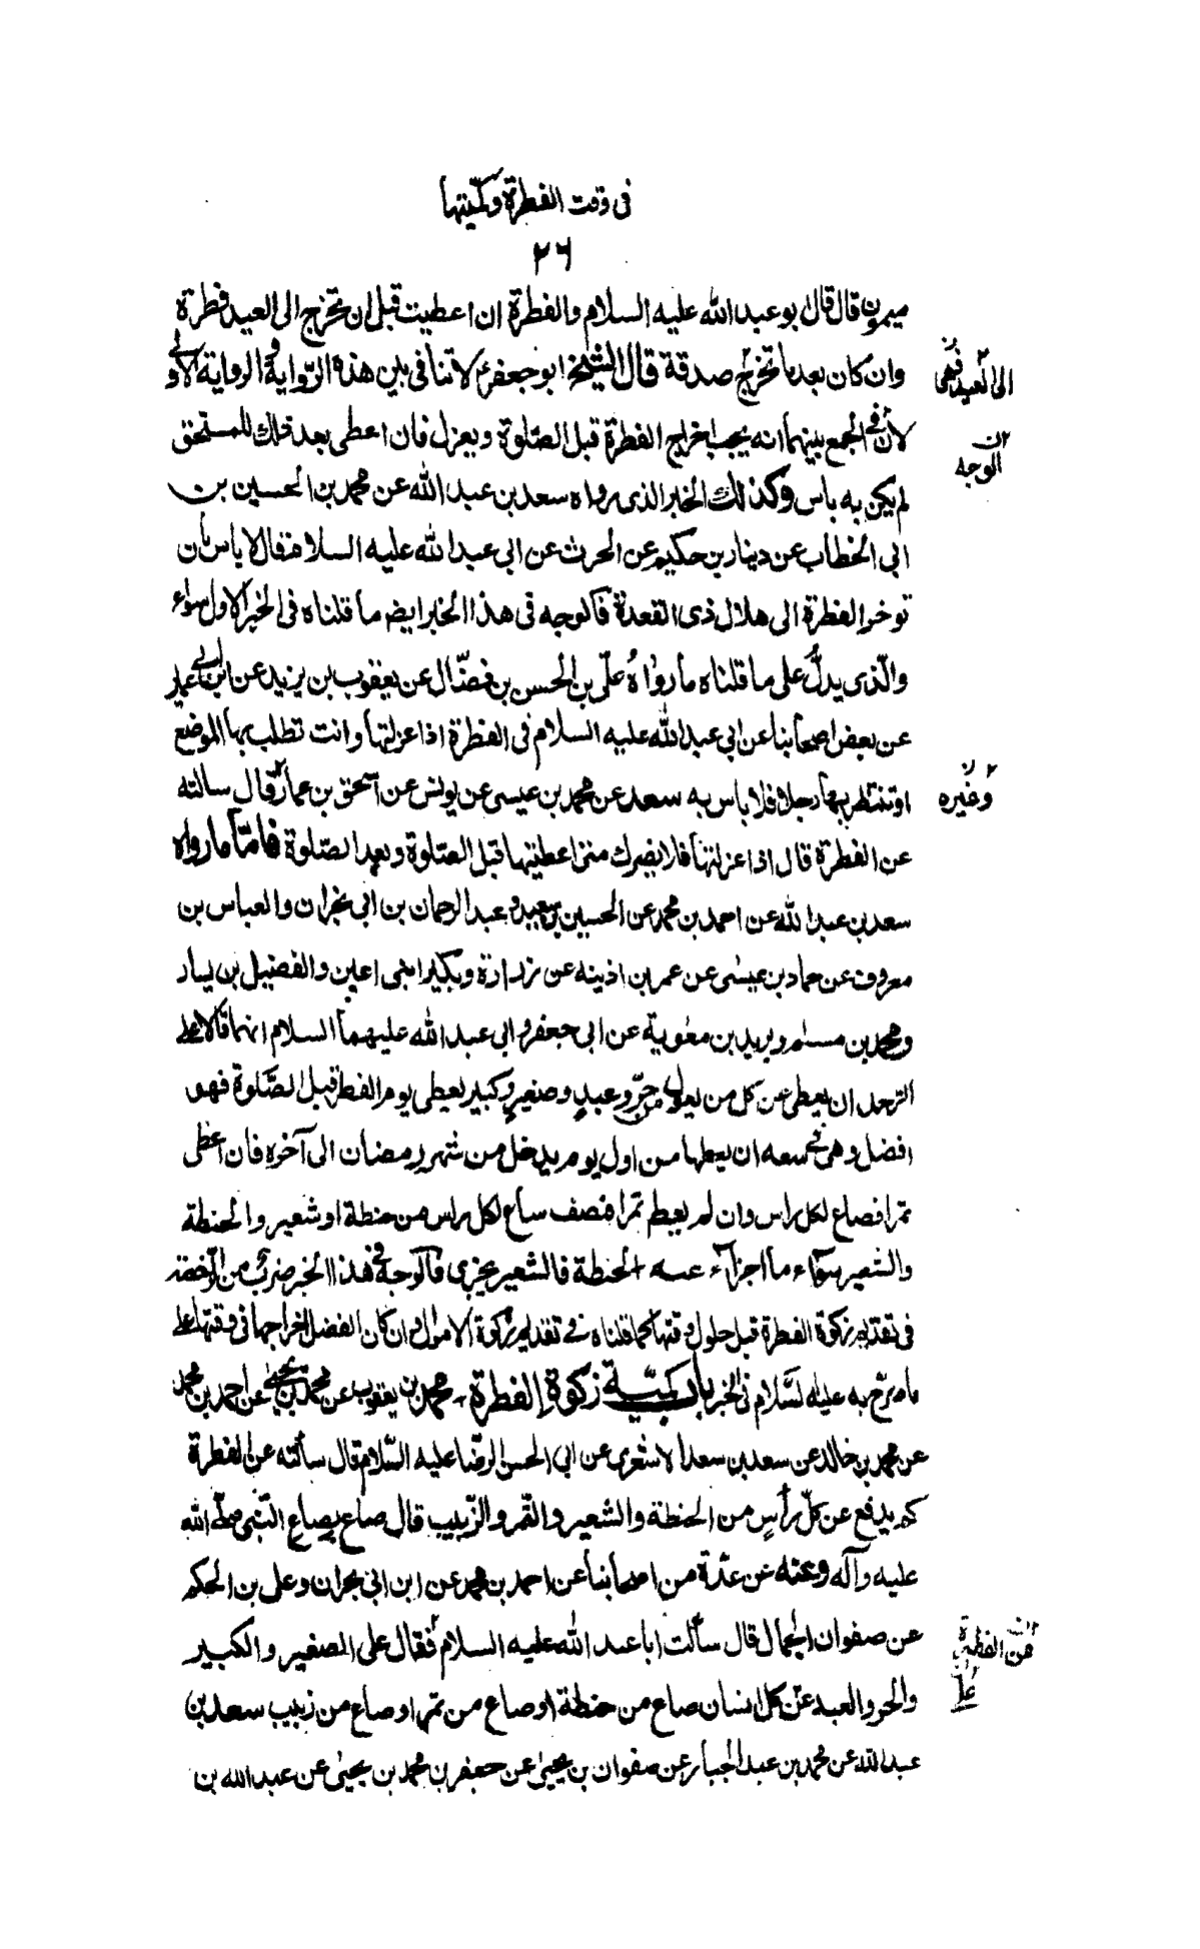 فى وقت الفطرة وكميّتها
٢٦
ميمون قال قال بو عبد الله عليه السلام والفطرة ان اعطيت قبل ان تخرج الى العيد فطرة
وان كان بعد ما تخرج صدقة قال الشيخ ابو جعفر لا تنافى بين هذه الرّواية والرواية الاولى
الى العيد فهى
لأن فى الجمع بينهما انه يجب اخراج الفطرة قبل الصّلوة ويعزل فان اعطى بعد ذلك للمستحق
الوجه
لم يكن به باس وكذلك الخبر الذى رواه سعد بن عبد الله عن محمد بن الحسين بن
ابى الخطاب عن دينار بن حكيم عن الحرث عن ابى عبد الله عليه السلام قال لا باس بأن
توخر الفطرة الى هلال ذى القعدة فالوجه فى هذا الخبر ايض ما قلناه فى الخبر الاول سواء
والّذى يدلّ على ما قلناه ما رواه علىّ بن الحسن بن فضّال عن يعقوب بن يزيد عن ابن ابى عمير
عن بعض اصحابنا عن ابى عبد الله عليه السلام فى الفطرة اذا عزلتها وانت تطلب بها الموضع
او تنتظر بها رجلا فلا باس به سعد عن محمد بن عيسى عن يونس عن اسحق بن عمار قال سالته
وغيره
عن الفطرة قال اذا عزلتها فلا يضرك متى اعطيتها قبل الصّلوة وبعد الصّلوة فامّا ما رواه
سعد بن عبد الله عن احمد بن محمد عن الحسين بن سعيد وعبد الرحمان بن ابى نجران والعباس بن
معروف عن حماد بن عيسى عن عمر بن اذينه عن زرارة وبكير ابنى اعين والفضيل بن يسار
ومحمد بن مسلم وبريد بن معوية عن ابى جعفر وابى عبد الله عليهما السلام انهما قالا على
الرجل ان يعطى عن كل من يعول من حرّ وعبد وصغير وكبير يعطى يوم الفطر قبل الصّلوة فهو
افضل وهو فى سعه ان يعطيها من اول يوم يدخل من شهر رمضان الى آخره فان اعطى
تمرا فصاع لكل راس وان لم يعط تمرا فنصف صاع لكل راس من حنطة او شعير والحنطة
والشعير سواء ما اجزأ عنه الحنطة فالشعير يجزى فالوجه فى هذا الخبر ضرب من الرّخصة
فى تقديم زكوة الفطرة قبل حلول وقتها كما قلناه فى تقديم زكوة الاموال وان كان الفضل اخراجها فى وقتها على
ما صرّح به عليه السّلام فى الخبر باب كميّة زكوة الفطرة محمد بن يعقوب عن محمد بن يحيى عن احمد بن محمد
عن محمد بن خالد عن سعد بن سعد الاشعرى عن ابى الحسن الرضا عليه السّلام قال سألته عن الفطرة
كم يدفع عن كلّ رأس من الحنطة والشعير والتّمر والزّبيب قال صاع بصاع النّبى صلّى الله
عليه وآله وعنه عن عدّة من اصحابنا عن احمد بن محمد عن ابن ابى نجران وعلى بن الحكم
عن صفوان الجمال قال سألت ابا عبد الله عليه السلام فقال على الصغير والكبير
عن الفطرة
والحر والعبد عن كل انسان صاع من حنطة او صاع من تمر او صاع من زبيب سعد بن
عبد الله عن محمد بن عبد الجبار عن صفوان بن يحيى عن جعفر بن محمد بن يحيى عن عبد الله بن